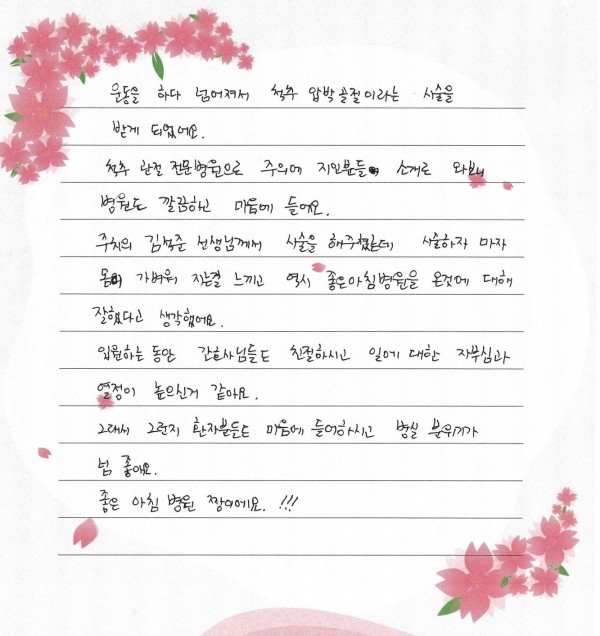 운동을 하다 넘어져서 척추 압박골절이라는 시술을
받게 되었어요.
척추 관절 전문병원으로 주의에 지인분들의 소개로 와보니
병원도 깔끔하고 마음에 들어요.
주치의 김석준 선생님께서 시술을 해주셨는데 시술하자 마자
몸이 가벼워 지는걸 느끼고 역시 좋은아침병원을 온것에 대해
잘했다고 생각했어요.
입원하는 동안 간호사님들도 친절하시고 일에 대한 자부심과
열정이 높으신거 같아요.
그래서 그런지 환자분들도 마음에 들어하시고 병실 분위기가
넘 좋아요.
좋은 아침 병원 짱이에요. !!!